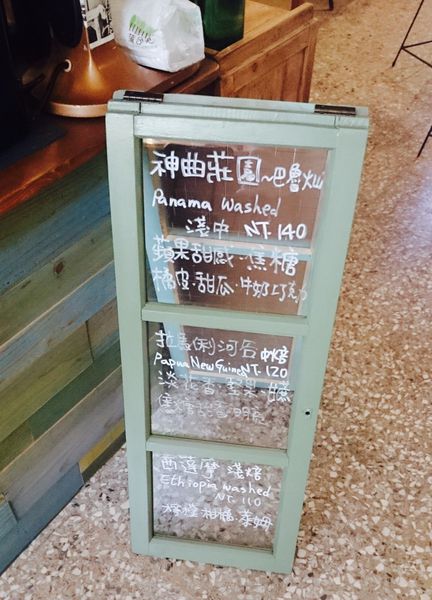 神曲莊園~巴魯火山
Panama washed
淺中 NT.140
蘋果甜感.焦糖
橘皮.甜瓜.牛奶巧克力
拉美俐河谷 中焙
Papua New Guinea NT.120
淡花香.堅果.甘蔗
西達摩 淺焙
Ethiopia washed
NT.110
檸檬.柑橘.萊姆